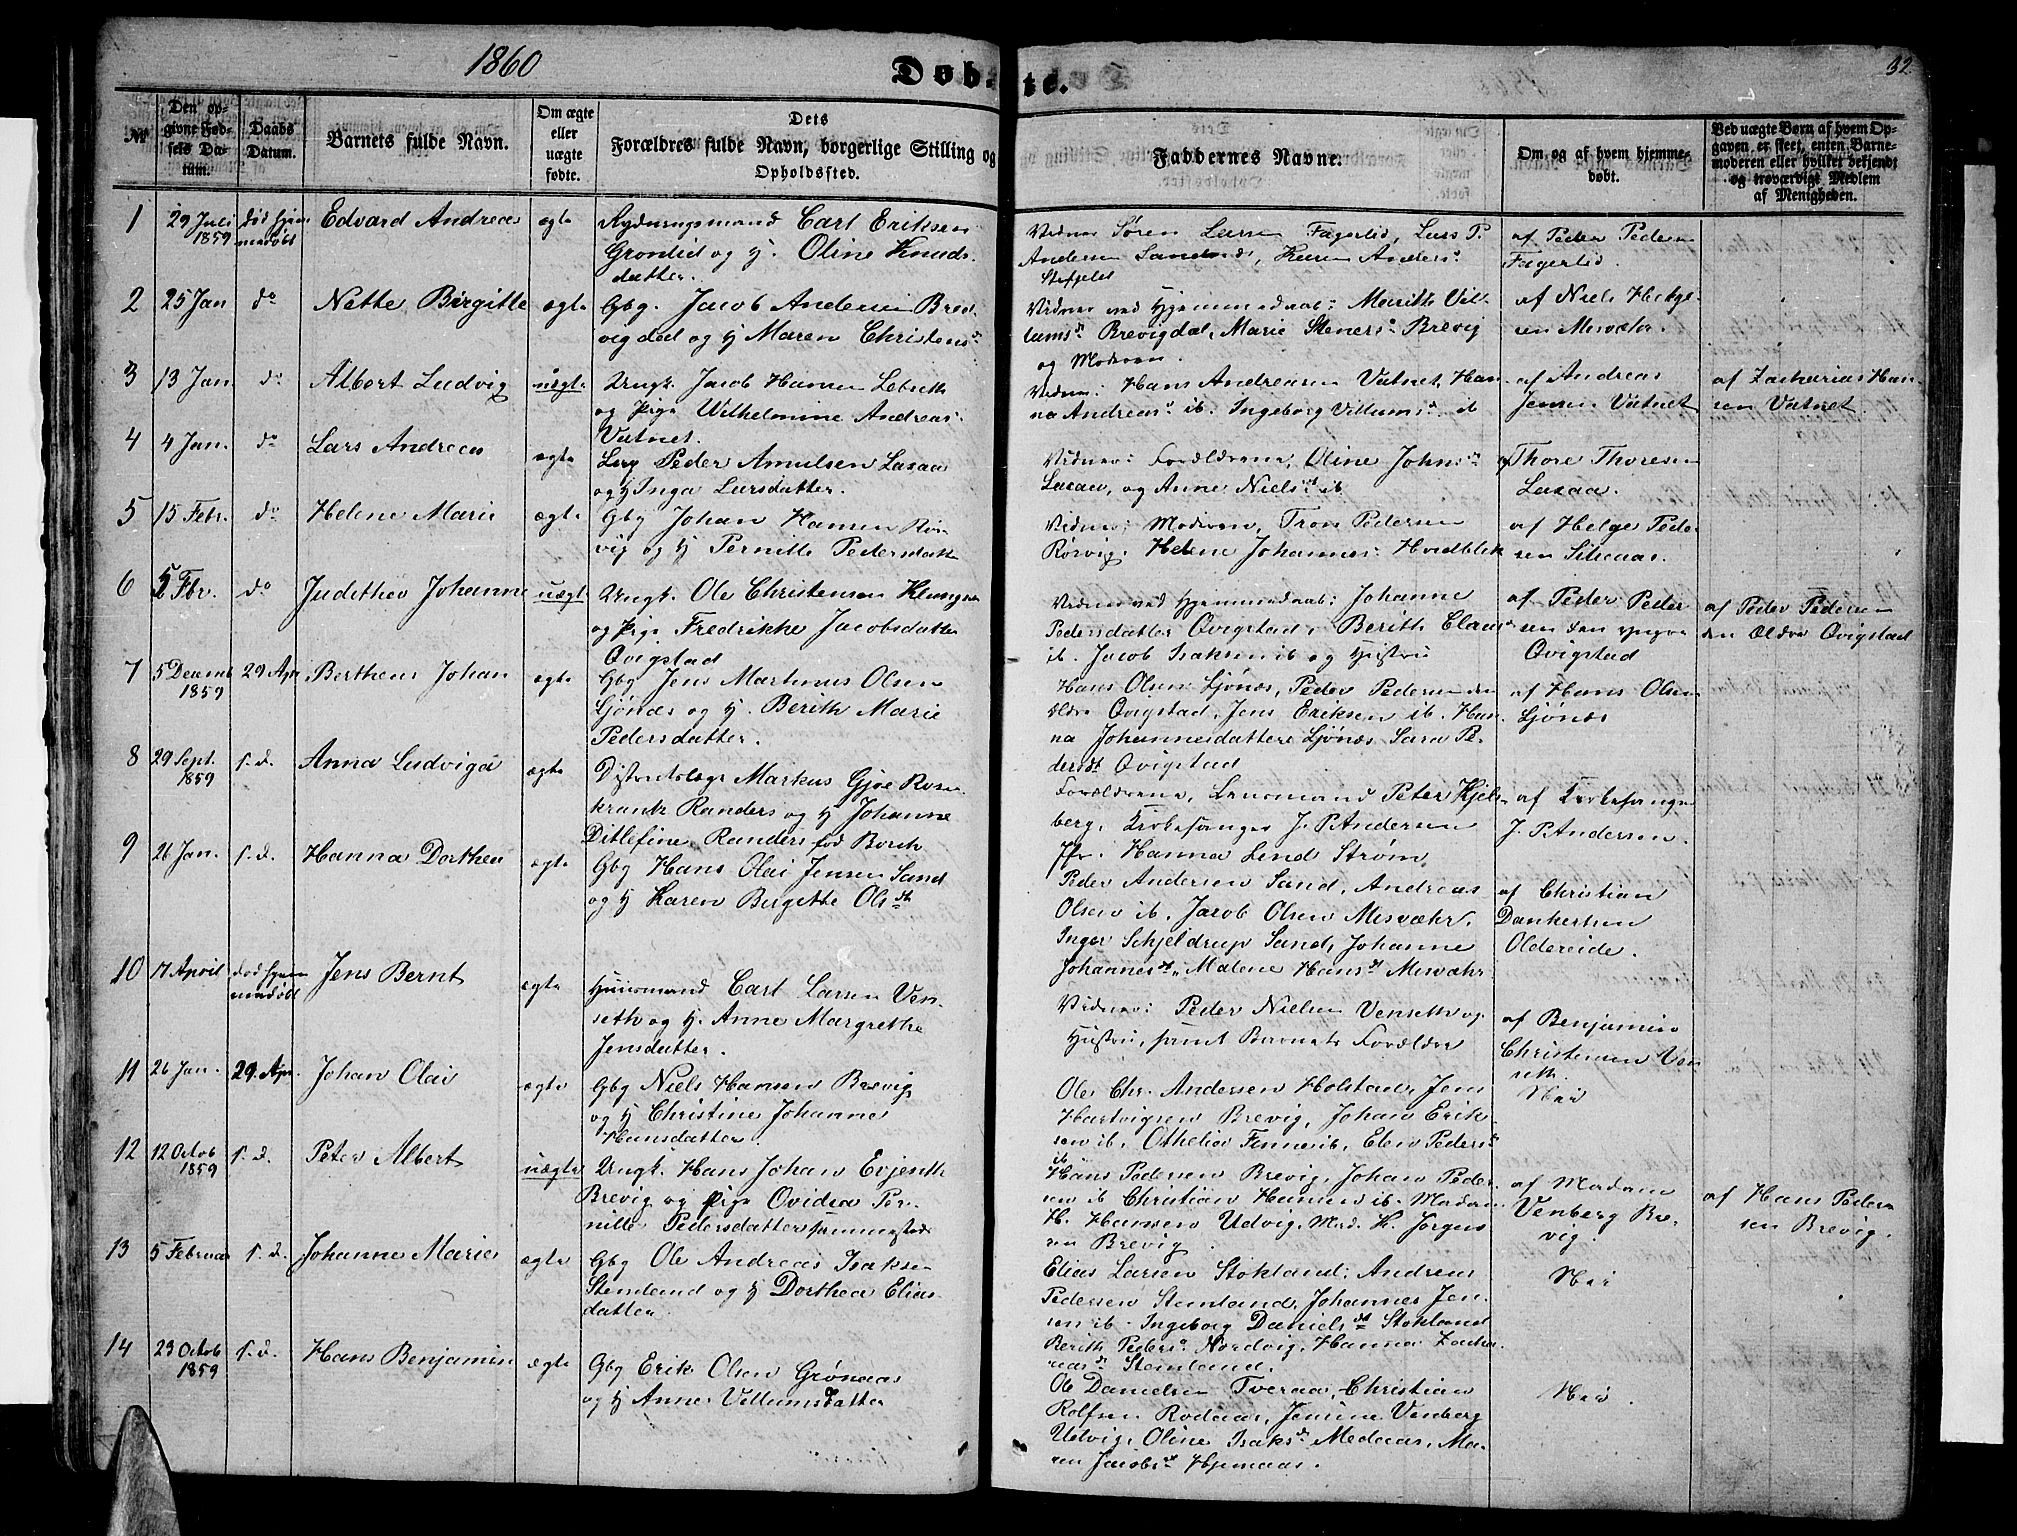 1860
Døbte.
32
No
Den opgivne Fødsels Datum.
Daabs Datum.
Barnets fulde Navn.
Om ægte eller uægte fødte.
Dets Forældres fulde Navn, borgerlige Stilling og Opholdssted.
Faddernes Navne.
Om og af hvem hjemmedøbt.
Ved uægte Børn af hvem Opgaven er skeet, enten Barnemoderen eller hvilket bekjendt og troværdigt Medlem af Menigheden.
1
29 Juli
1859
død hjem
medøbt
Edvard Andreas
ægte
Rydningsmand Carl Eriksen
Grønlid og H. Oline Knuds-
datter.
Vidner Søren Larsen Fagerlid, Lars P.
Andersen, Karen Anders
af Peder Pedersen
Fagerlid.
2
25 Jan
do
Nette Birgitte
ægte
Gbg. Jacob Andersen Bre-
vigdal og H Maren Christens
Vidner ved Hjemmedaab: Marith Vil-
lums Brevigdal, Marie Steners Brevig
og Moderen.
af Niels Helge-
sen Misvær.
3
13 Jan
do
Albert Ludvig
uægte
Ungk. Jacob Hansen
og Pige Wilhelmine Andreas
Vatnet.
Vidner: Hans Andreasen Vatnet, Han-
na Andreas ib. Ingeborg Villums ib
af Andreas
Jensen Vatnet
af Zacharias Han-
sen Vatnet.
4
4 Jan.
do
Lars Andreas
ægte
Peder Amulsen Laxaa
og H Inga Larsdatter.
Vidner: Forældrene, Oline Johns
Laxaa, og Anne Niels ib
af Thore Thoresen
Laxaa.
5
15 Febr.
do
Helene Marie
ægte
Gbg Johan Hansen Rør-
vig og H Pernille Pedersdatt
Vidner: Moderen, Tron Pedersen
Rørvig. Helene Johannes
af Helge Peder-
sen
6
5 Fbr.
do
Judithea Johanne
uægt
Ungk. Ole Christensen Klungset
og Pige Fredrikke Jacobsdatter
Qvigstad
Vidner ved Hjemmedaab: Johanne
Pedersdatter Qvigstad, Berith Claus
ib. Jacob Isaksen ib og Hustru
af Peder Peder
sen den yngre
Qvigstad
af Peder Pedersen
den Ældre Qvigstad
7
5 Decemb
1859
29 Apr
Bertheus Johan
ægte
Gbg Jens Martinus Olsen
Ljønæs og H. Berith Marie
Pedersdatter.
Hans Olsen Ljønæs, Peder Pedersen den
ældre Qvigstad, Jens Eriksen ib. Han-
na Johannesdatter Ljønæs Sara Pe-
dersdt Qvigstad
af Hans Olsen
Ljønæs
8
29 Sept.
1859
s. d.
Anna Ludviga
ægte
Districtslæge Markus Gjøe Rosen-
krantz Randers og H Johanne
Ditlefine Randers fød Borch
Forældrene, Lensmand Peter Kjels-
berg, Kirkesanger J. P. Andersen
Jfr. Hanna Lind Strøm.
af Kirkesanger
J. P. Andersen.
9
26 Jan.
s. d.
Hanna Dorthea
ægte
Gbg Hans Olai Jensen Sand
og H Karen Birgitte Olsdt
Peder Andersen Sand, Andreas
Olsen ib. Jacob Olsen Misvæhr.
Inger Schjeldrup Sand, Johanne
Johannesdt, Malene Hansdt Misvæhr
af Christian
Dankertsen
Oldereide.
10
17 April
død hjem
medøbt
Jens Bernt
ægte
Huusmand Carl Larsen Ven-
seth og H. Anne Margrethe
Jensdatter.
Vidner: Peder Nielsen Venseth og
Hustru, samt Barnets Forældre
af Benjamin
Christensen Ven
seth.
11
26 Jan.
29. Apr.
Johan Olai
ægte
Gbg Niels Hansen Brevig,
og H Christine Johanne
Hansdatter.
Ole Chr. Andersen Holstad, Jens
Hartvigsen Brevig, Johan Erik-
sen ib, Othelia Finne ib, Elen Peders
ib
Nei
12
12 Octob
1859
s. d.
Peter Albert
uægte
Ungk. Hans Johan Evjenth
Brevig og Pige Ovidea Per-
nille Pedersdatter sammesteds
Hans Pedersen Brevig, Johan Peder-
sen ib Christian Hansen ib. Madam
H. Hansen Udvig, Mad. H. Jørgen-
sen Brevig.
af Madame
Venberg Bre-
vig.
af Hans Peder-
sen Brevig.
13
5 Februar
s. d.
Johanne Marie
ægte
Gbg Ole Andreas Isaksen
Stemland og H Dorthea Elias-
datter.
Elias Larsen Stokland, Andreas
Pedersen Stemland, Johannes Jen-
sen ib. Ingeborg Danielsdt Stokland
Berith Peders Nordvig, Hanna Zacha-
riasdt Stemland.
Nei
14
23 Octob
1859
s. d.
Hans Benjamin
ægte
Gbg Erik Olsen Grønaas
og H Anne Villumsdatter
Ole Danielsen Tveraa, Christian
Rolfsen Rodaas, Jenine Venberg
Udvig, Oline Isaksdt Medaas, Ma-
ren Jacobsdt Hjemaas.
Nei.